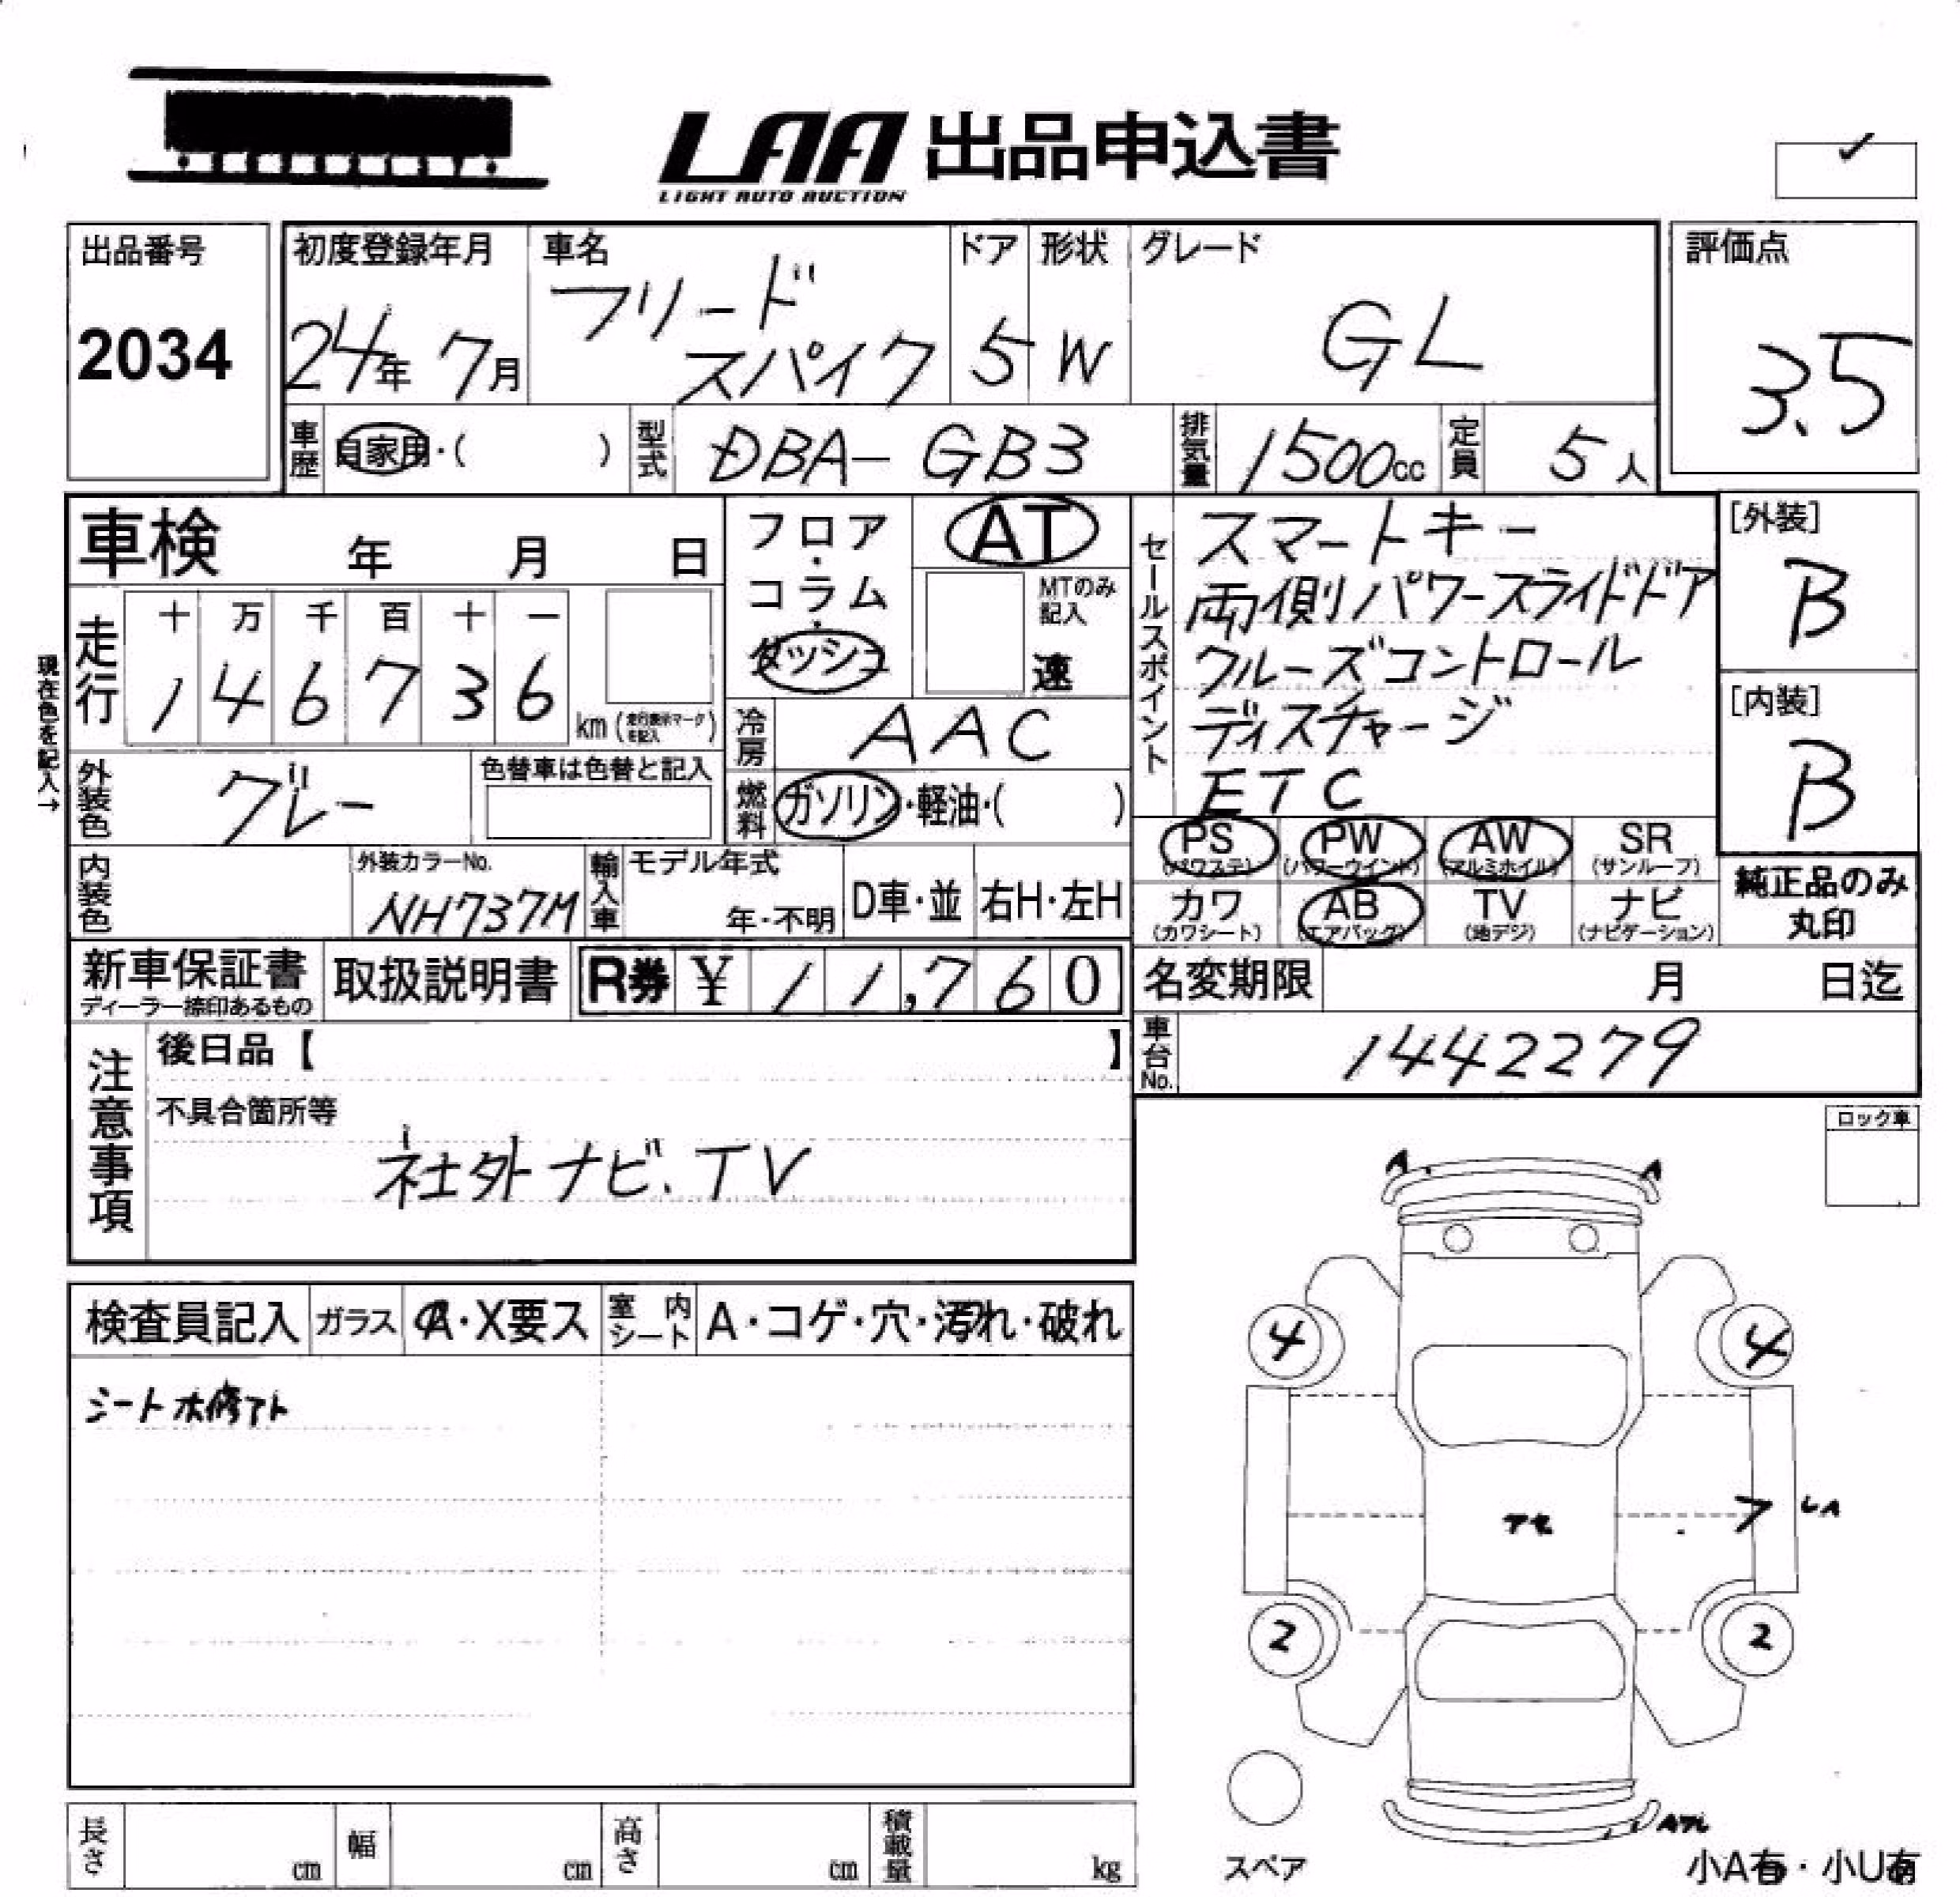 LAA 出品申込書
LIGHT AUTO AUCTION
✓
出品番号
2034
初度登録年月
24年 7月
車名
フリード
スパイク
ドア
5
形状
W
グレード
GL
評価点
3.5
車歴
自家用・( )
型式
DBA-GB3
排気量
1500cc
定員
5人
車検 年 月 日
フロア
・
コラム
・
ダッシュ
AT
MTのみ
記入
速
セールスポイント
スマートキー
両側パワースライドドア
クルーズコントロール
ディスチャージ
ETC
[外装]
B
[内装]
B
現在色を記入→
走行
十 万 千 百 十 一
1 4 6 7 3 6
km
冷房
AAC
外装色
グレー
色替車は色替と記入
燃料
ガソリン・軽油・( )
PS
(パワステ)
PW
(パワーウインド)
AW
(アルミホイル)
SR
(サンルーフ)
カワ
(カワシート)
AB
(エアバッグ)
TV
(地デジ)
ナビ
(ナビゲーション)
純正品のみ
丸印
内装色
外装カラーNo.
NH737M
輸入車
モデル年式
年・不明
D車・並
右H・左H
新車保証書
ディーラー捺印あるもの
取扱説明書
R券 ¥ 11,760
名変期限 月 日迄
車台No.
1442279
注意事項
後日品【 】
不具合箇所等
社外ナビ、TV
ロック車
検査員記入
ガラス
A・X要ス
室内シート
A・コゲ・穴・汚れ・破れ
A
A
4
4
7
2
2
スペア
長さ
cm
幅
cm
高さ
cm
積載量
kg
小A有・小U有